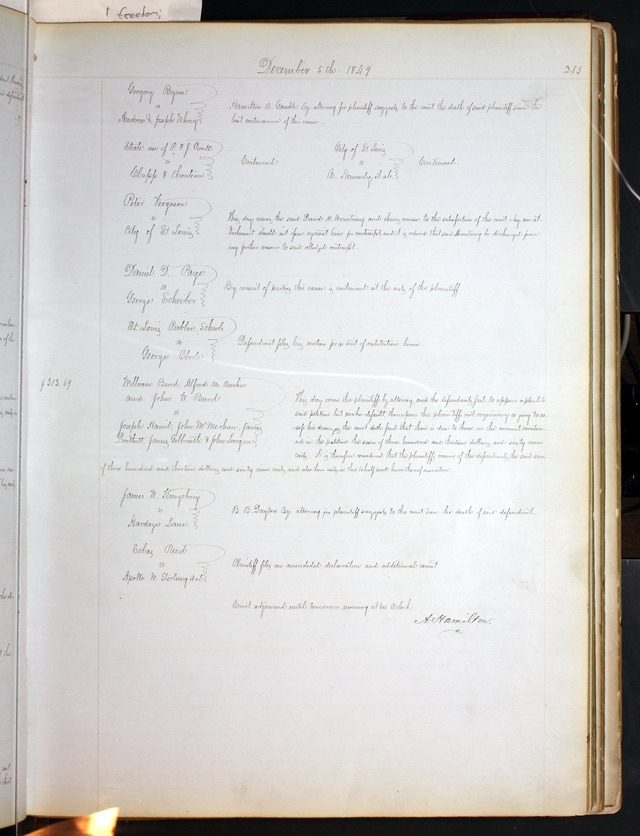 freedom;
December 5th 1849
353
Gregory Byrne
vs
Andrew & Joseph
Hamilton R. Gamble Esq attorney for plaintiff suggests to the court the death of said plaintiff since the
last continuance of this cause.
State use of P. & J.
vs
Chouteau
Continued
City of St Louis
vs
A. et al
Continued
Peter Ferguson
vs
City of St Louis
This day comes the said David H. Armstrong and shows cause to the satisfaction of the court why an at
tachment should not issue against him for contempt, and it is ordered that said Armstrong be discharged from
any further answer to said alleged contempt.
Daniel D. Page
vs
George Scheeber
By consent of parties this cause is continued at the costs of the plaintiff
St Louis Public Schools
vs
George
Defendant files his motion for a writ of restitution herein
$313.69
William Baird, Alfred M.
and John W. Baird
vs
Joseph Hamil, John McMechan, James
James Galbraith & John
This day come the plaintiffs by attorney, and the defendants fail to appear or plead to
said petition but make default, thereupon the plaintiffs not requiring a jury to as
sess his damages, the court doth find that there is due to them on the account mention
ed in the petition the sum of three hundred and thirteen dollars and sixty nine
cents. It is therefore considered that the plaintiffs recover of the defendants the said sum
of three hundred and thirteen dollars and sixty nine cents and also their costs in this behalf and have thereof execution.
James W. Kingsbury
vs
Hardage Lane
B. B. Dayton Esq. attorney for plaintiff suggests to the court here the death of said defendant.
Silas Reed
vs
Apollo W. Sterling et al
Plaintiff files an amended declaration and additional count
Court adjourned until tomorrow morning at ten o'clock
A. Hamilton.